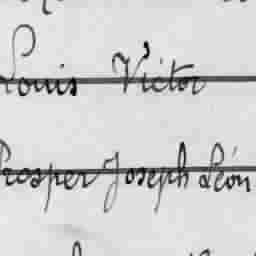 Louis Victor
Prosper Joseph Léon